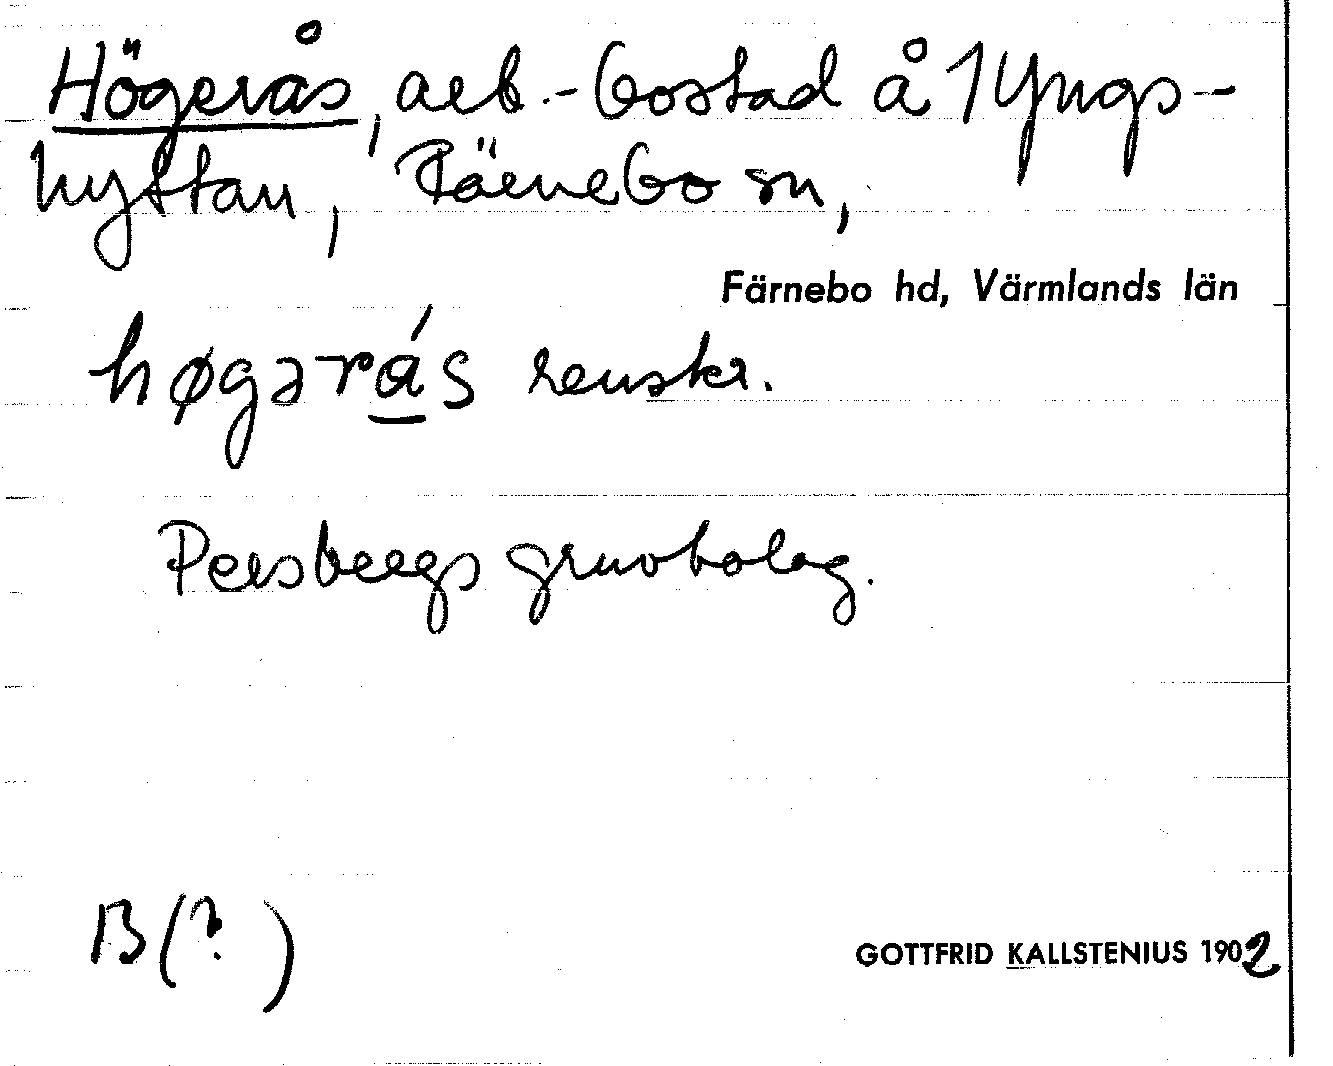 Högerås, arb.-bostad å 1 Yngs-
hyttan, Färnebo sn,
Färnebo hd, Värmlands län
høgərá̲s renskr.
Persbergs gruvbolag.
B (?)
GOTTFRID KALLSTENIUS 1902